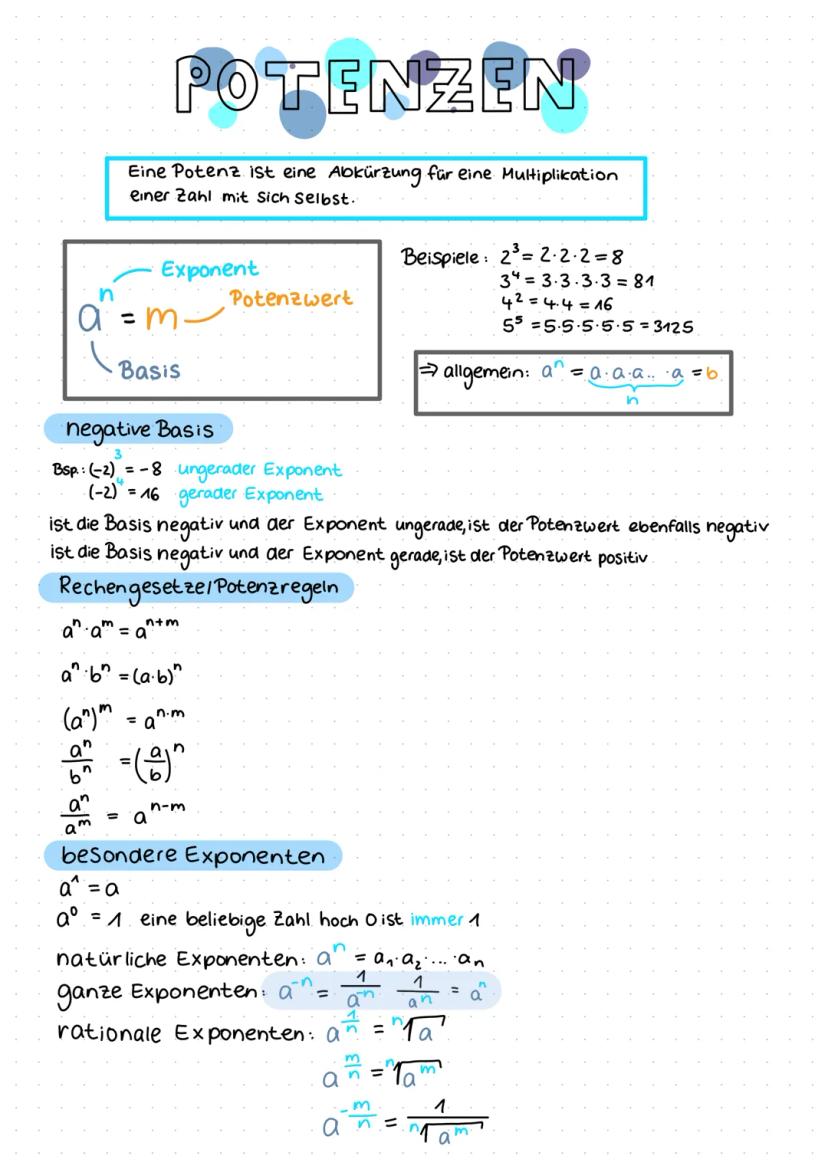 POTENZEN
Eine Potenz ist eine Abkürzung für eine Multiplikation
einer Zahl mit sich selbst.
Exponent
aⁿ = m
Potenzwert
Basis
Beispiele: 2³ = 2·2·2 = 8
3⁴ = 3·3·3·3 = 81
4² = 4·4 = 16
5⁵ = 5·5·5·5·5 = 3125
⇒ allgemein: aⁿ = a·a·a.. ·a = b
n
negative Basis
Bsp.: (-2)³ = -8 ungerader Exponent
(-2)⁴ = 16 gerader Exponent
ist die Basis negativ und der Exponent ungerade, ist der Potenzwert ebenfalls negativ
ist die Basis negativ und der Exponent gerade, ist der Potenzwert positiv
Rechengesetze/Potenzregeln
aⁿ·aᵐ = aⁿ⁺ᵐ
aⁿ·bⁿ = (a·b)ⁿ
(aⁿ)ᵐ = aⁿ·ᵐ
aⁿ/bⁿ = (a/b)ⁿ
aⁿ/aᵐ = aⁿ⁻ᵐ
besondere Exponenten
a¹ = a
a⁰ = 1 eine beliebige Zahl hoch 0 ist immer 1
natürliche Exponenten: aⁿ = a₁·a₂·...·aₙ
ganze Exponenten: a⁻ⁿ = 1/a⁻ⁿ 1/aⁿ = aⁿ
rationale Exponenten: a^(1/n) = ⁿ√a
a^(m/n) = ⁿ√aᵐ
a^(-m/n) = 1/ⁿ√aᵐ